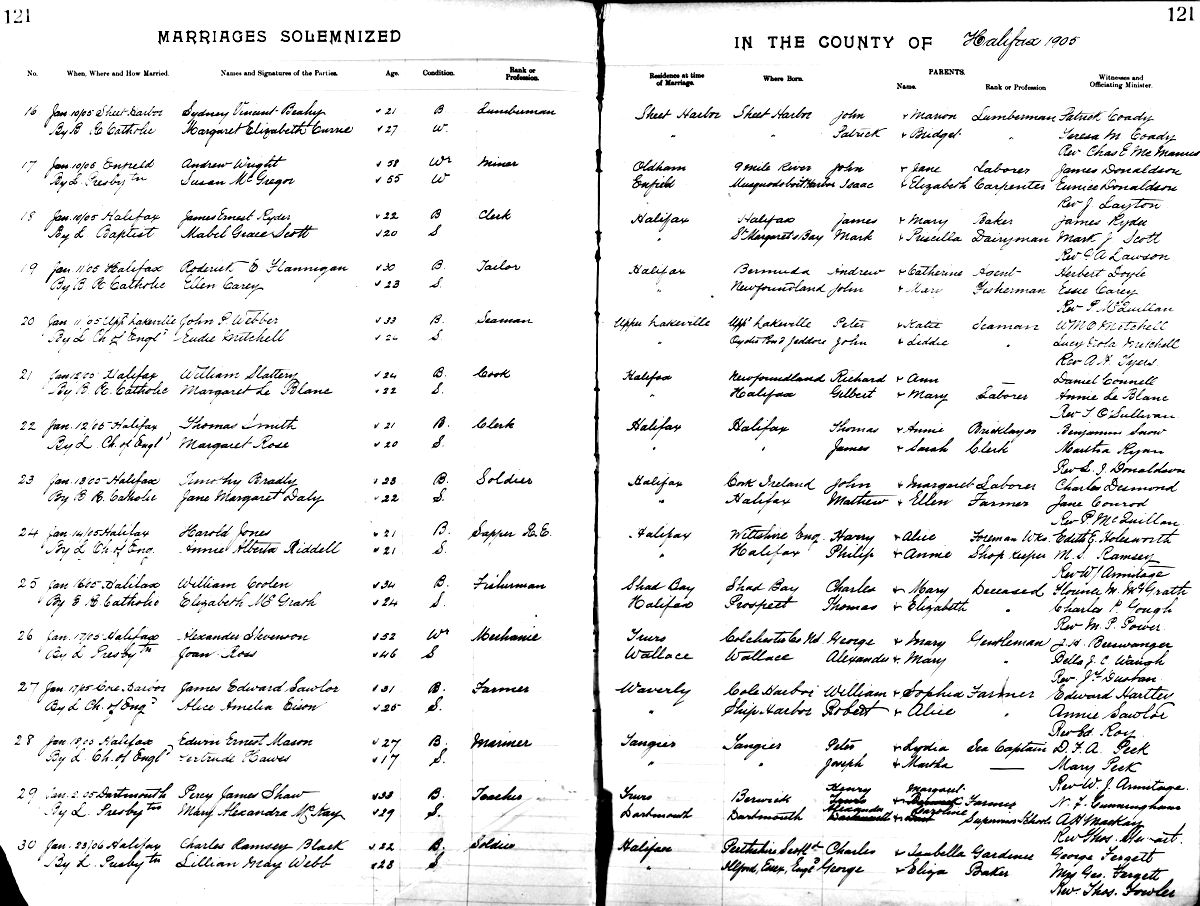 121
121
MARRIAGES SOLEMNIZED
IN THE COUNTY OF Halifax 1905
No. When, Where and How Married. Names and Signatures of the Parties. Age. Condition. Rank or Profession. Residence at time of Marriage. Where Born. PARENTS. Name. Rank or Profession Witnesses and Officiating Minister.
16 Jan 10/05 Sheet Harbor Sydney Vincent Beahy 21 B. Lumberman Sheet Harbor Sheet Harbor John & Marion Lumberman Patrick Coady
By B R Catholic Margaret Elizabeth Currie 27 W. " " Patrick & Bridget " Teresa M Coady
Rev Chas E McManus
17 Jan 10/05 Enfield Andrew Wright 58 Wr Miner Oldham 9 mile River John & Jane Laborer James Donaldson
By L Presbytn Susan McGregor 55 W Enfield Musquodoboit Harbor Isaac & Elizabeth Carpenter Eunice Donaldson
Rev J. Layton
18 Jan 10/05 Halifax James Ernest Ryder 22 B Clerk Halifax Halifax James & Mary Baker James Ryder
By L Baptist Mabel Grace Scott 20 S. " St Margarets Bay Mark & Priscilla Dairyman Mark J Scott
Rev G A Lawson
19 Jan 11/05 Halifax Roderick E Flannigan 30 B. Tailor Halifax Bermuda Andrew & Catherine Agent Herbert Doyle
By B R Catholic Ellen Carey 23 S " Newfoundland John & Mary Fisherman Essie Carey
Rev P. McQuillan
20 Jan 11/05 Uppr Lakeville John P Webber 33 B. Seaman Upper Lakeville Uppr Lakeville Peter & Katie Seaman WM O Mitchell
By L Ch of Engld Eudie Mitchell 26 S. " Oyster Pond Jeddore John & Liddie " Lucy Viola Mitchell
Rev A H Tyers
21 Jan 12/05 Halifax William Slattery 24 B. Cook Halifax Newfoundland Richard & Ann — Daniel Connell
By B. R. Catholic Margaret Le Blanc 22 S. " Halifax Gilbert & Mary Laborer Annie Le Blanc
Rev T O'Sullivan
22 Jan. 12/05 Halifax Thomas Smith 21 B. Clerk Halifax Halifax Thomas & Annie Bricklayer Benjamin Snow
By L Ch. of Engld Margaret Rose 20 S. " " James & Sarah Clerk Martha Ryan
Rev L. J Donaldson
23 Jan. 13/05 Halifax Timothy Bradly 28 B. Soldier Halifax Cork Ireland John & Margaret Laborer Charles Desmond
By B. R. Catholic Jane Margaret Daly 22 S. " Halifax Mathew & Ellen Farmer Jane Conrod
Rev P. McQuillan
24 Jan 14/05 Halifax Harold Jones 21 B. Sapper R.E. Halifax Wiltshire Eng. Harry & Alice Foreman Wks. Edith E Holesworth
By L Ch of Eng. Annie Alberta Riddell 21 S. " Halifax Philip & Annie Shop keeper M. S. Ramsey
Rev W J Armitage
25 Jan 16/05 Halifax William Coolen 34 B. Fisherman Shad Bay Shad Bay Charles & Mary Deceased M. McGrath
By B R Catholic Elizabeth McGrath 24 S. Halifax Prospect Thomas & Elizabeth " Charles P. Gough
Rev M. P. Power
26 Jan. 17/05 Halifax Alexander Stevenson 52 Wr Mechanic Truro Colchester Co NS George & Mary Gentleman
By L Presbytn Joan Ross 46 S Wallace Wallace Alexander & Mary " Della J. C. Waugh
Rev. Jn Dustan
27 Jan 17/05 Cole Harbor James Edward Sawlor 31 B. Farmer Waverly Cole Harbor William & Sophia Farmer Edward Hartley
By L Ch. of Engd Alice Amelia Eison 25 S. " Ship Harbor Robert & Alice " Annie Sawlor
Rev Ed Roy
28 Jan 18/05 Halifax Edwin Ernest Mason 27 B. Mariner Tangier Tangier Peter & Lydia Sea Captain D. F. A. Peck
By L. Ch. of Engld Gertrude Hawes 17 S. " " Joseph & Martha — Mary Peck
Rev W. J. Armitage
29 Jan. 2/05 Dartmouth Percy James Shaw 33 B. Teacher Truro Berwick Henry & Margaret Farmer N. F. Cunningham
By L. Presbytn Mary Alexandra McKay 29 S. Dartmouth Dartmouth Alexander & Caroline Supervisor Schools A H MacKay
Rev Thos. Stewart.
30 Jan. 23/05 Halifax Charles Ramsey Black 22 B. Soldier Halifax Perthshire Scotld Charles & Isabella Gardener George Fergett
By L. Presbytn Lillian May Webb 23 S. " Ilford, Essex, Engd George & Eliza Baker Mrs Geo. Fargett
Rev. Thos. Fowler